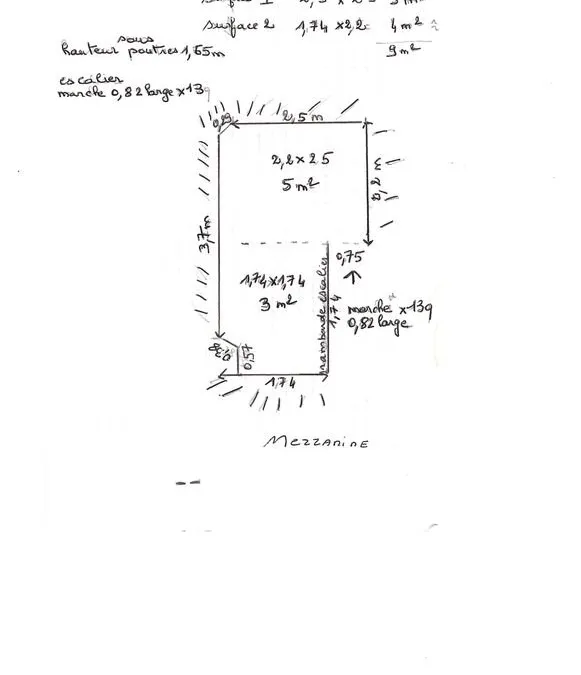 surface 2 1,74 x 2,2 = 4 m²
9 m²
sous
hauteur poutres 1,65m
escalier
marche 0,82 large x 13g
0,29
2,5 m
2,2 x 2 5
5 m²
2,2 m
3,7m
0,75
1,74 x 1,74
3 m²
rambarde escalier
1,74
marche x 13g
0,82 large
0,38
0,57
1,74
MEZZANINE